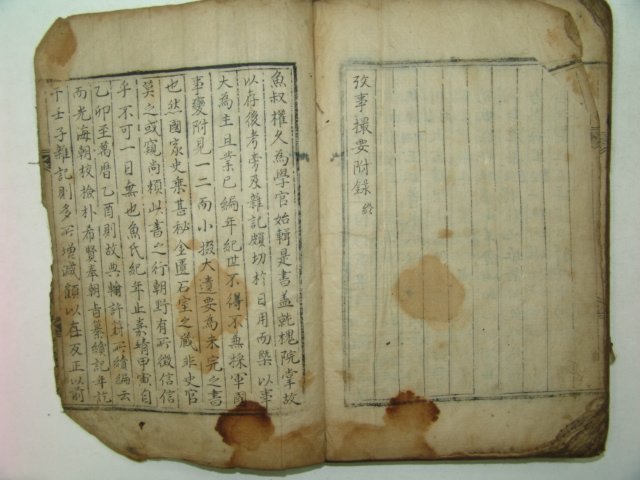 攷事撮要附錄 終
魚叔權久為學官始輯是書盖乾槐院掌故
以存後考旁及雜記頗切於日用而槩以事
大為主且業已編年紀世不得不無採軍國
事變附見一二而小掇大遺要為未完之書
也然國家史乘甚秘金匱石室之蔵非史官
莫之或窺尚頼此書之行朝野有所徵信信
乎不可一日無也魚氏紀年止嘉靖甲寅自
乙卯至萬曆乙酉則故典翰許篈所續編云
而光海朝校撿朴希賢奉朝旨纂續記年訖
于士子雜記則多所增減顧以在反正以前